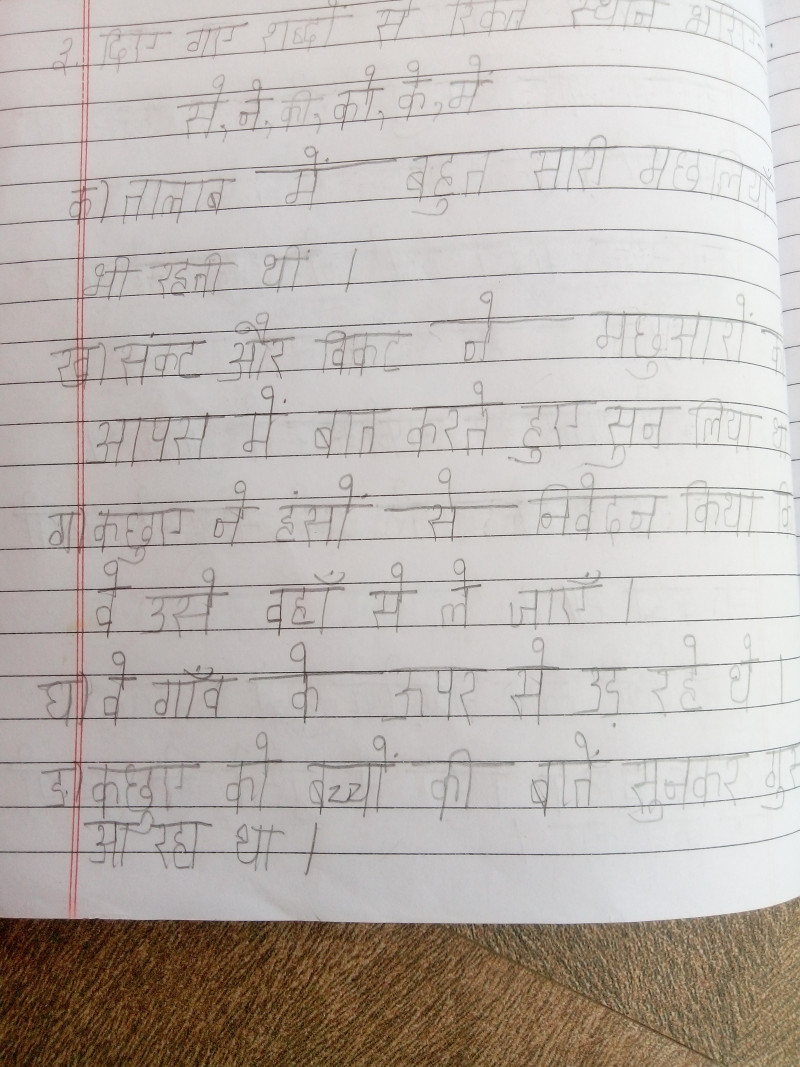 2. दिए गए शब्दों से रिक्त स्थान भरिए-
से, ने, की, को, के, में
क) तालाब में बहुत सारी मछलियाँ
भी रहती थीं ।
ख) संकट और विकट ने मछुआरों
आपस में बात करते हुए सुन लिया
ग) कछुए ने हंसों से निवेदन किया
वे उसे वहाँ से ले जाएँ ।
घ) वे गाँव के ऊपर से उड़ रहे थे ।
ङ) कछुए को बच्चों की बातें सुनकर
आ रहा था ।